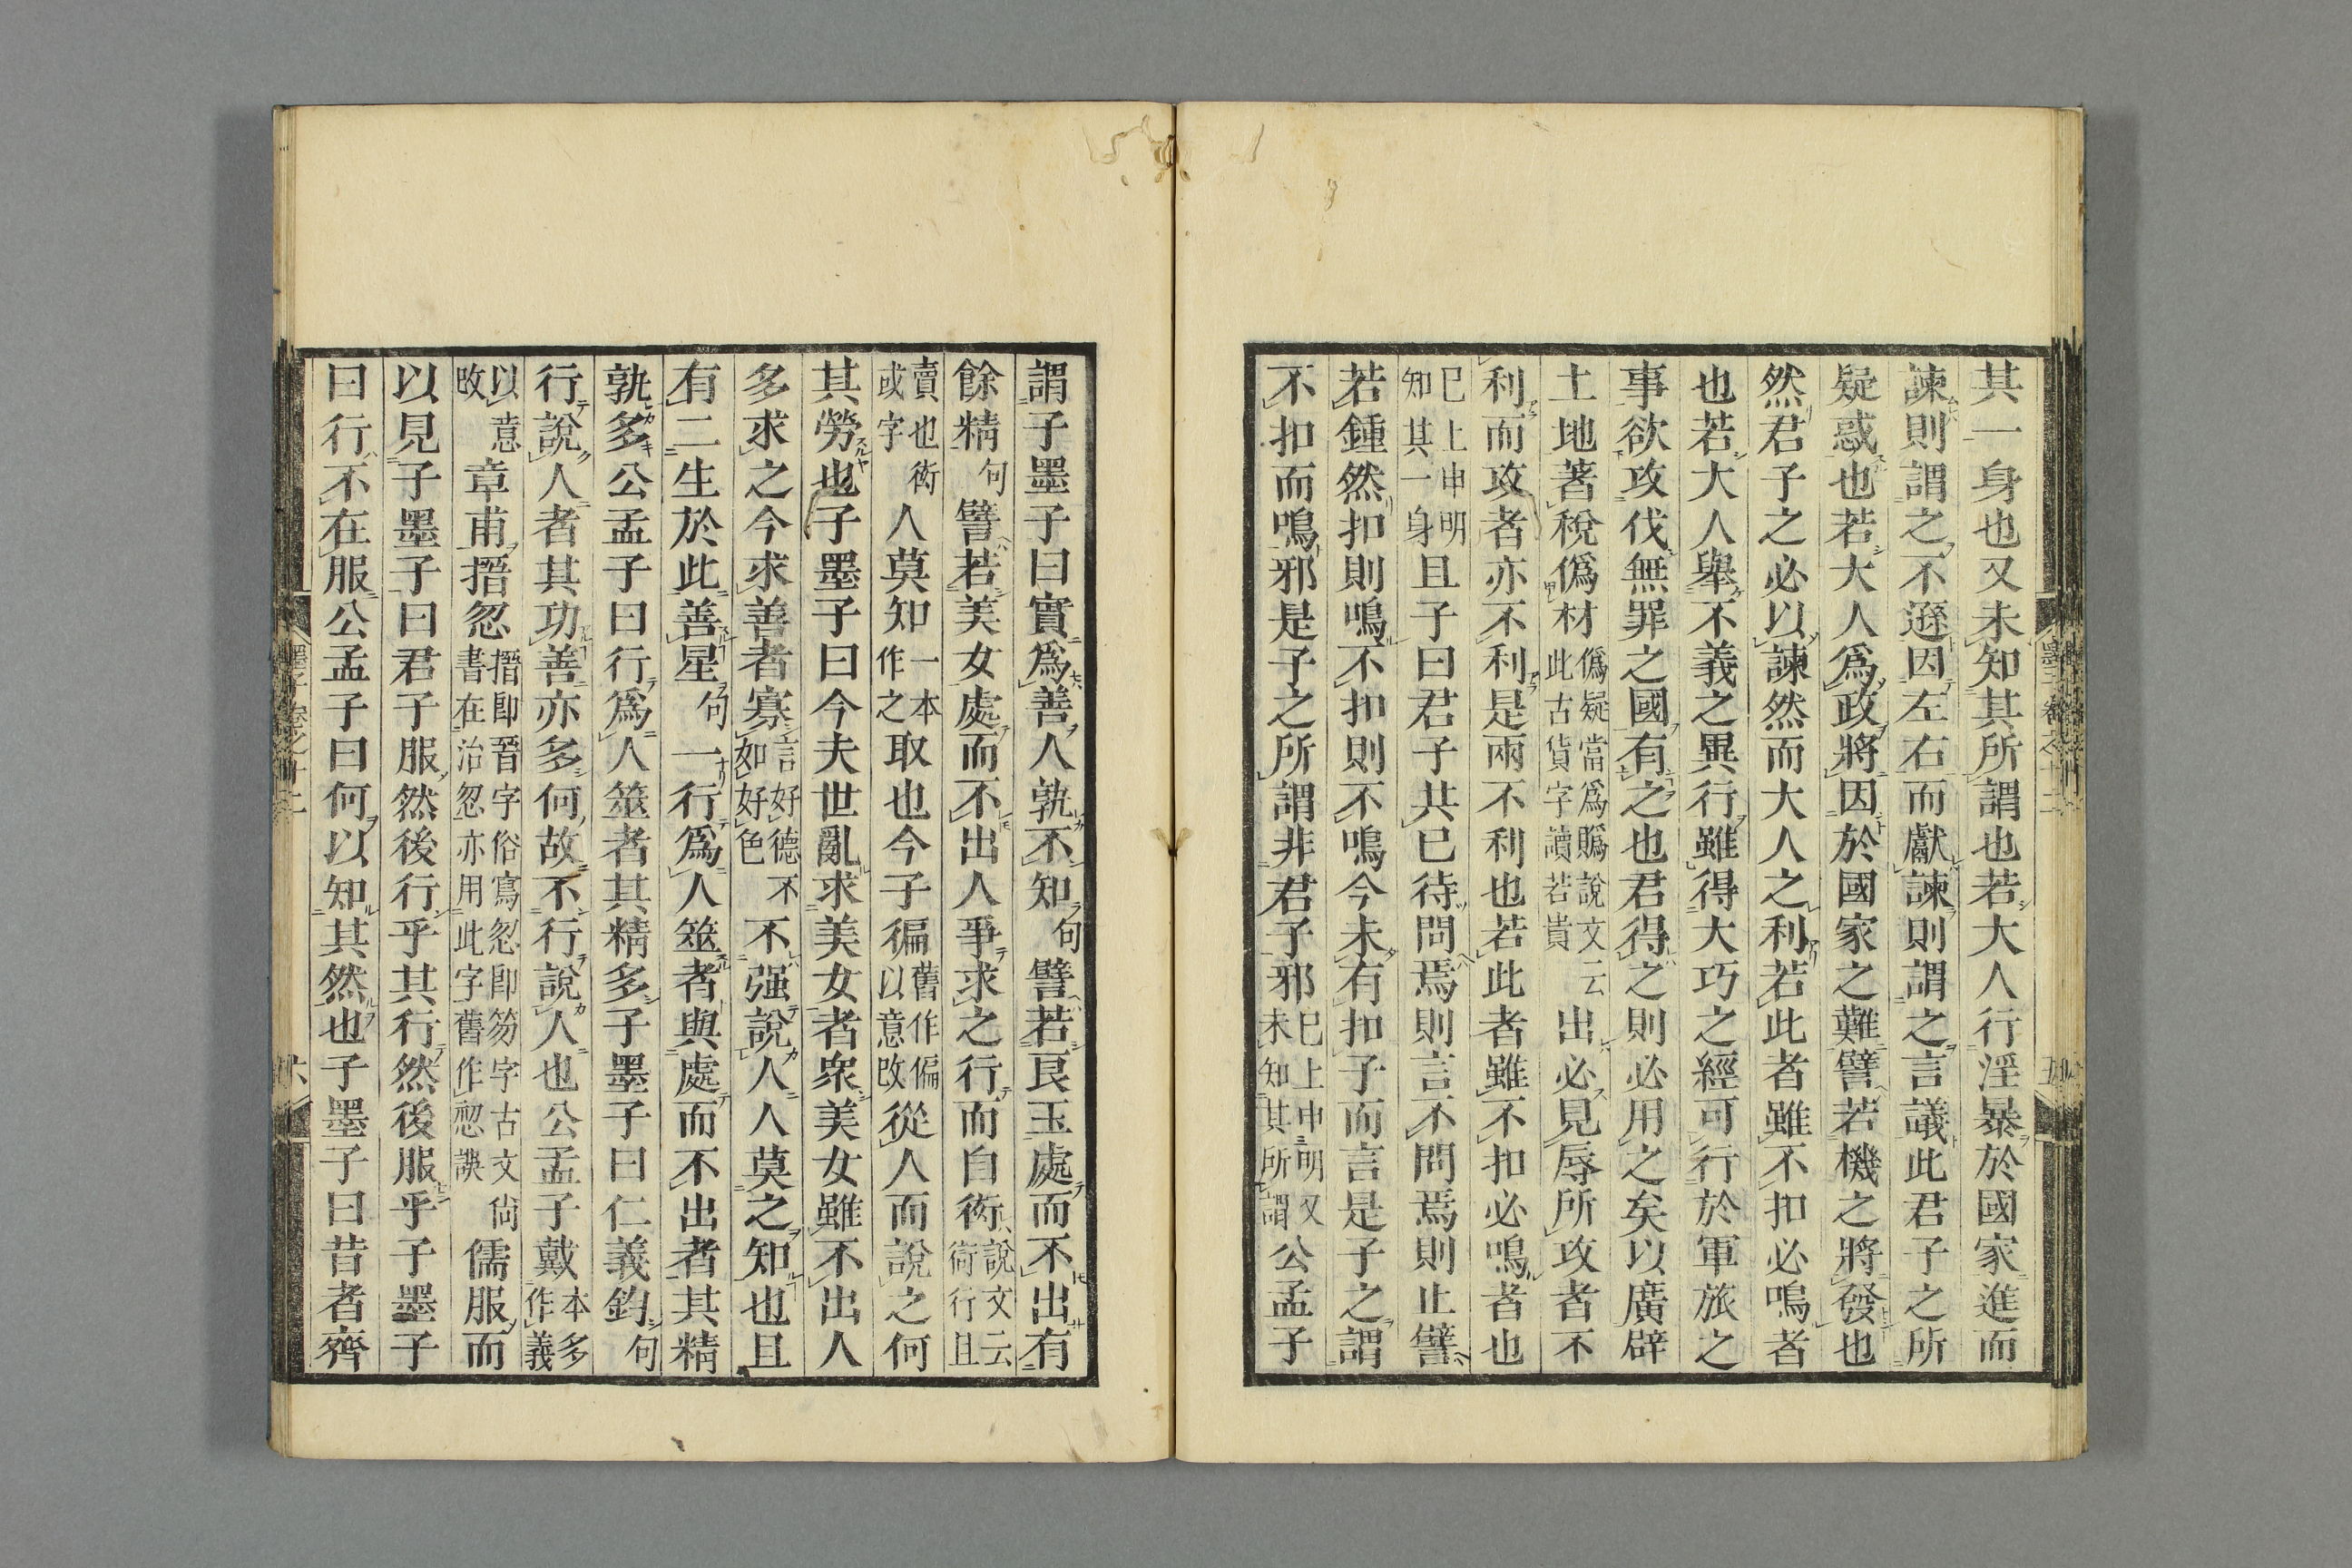 其一身也又未知其所謂也若大人行淫暴於國家進而
諫則謂之不遜因左右而獻諫則謂之言議此君子之所
疑惑也若大人爲政將因於國家之難譬若機之將發也
然君子之必以諫然而大人之利若此者雖不扣必鳴者
也若大人舉不義之異行雖得大巧之經可行於軍旅之
事欲攻伐無罪之國有之也君得之則必用之矣以廣辟
土地著稅偽材偽疑當爲䞈說文云此古貨字讀若貴出必見辱所攻者不
利而攻者亦不利是兩不利也若此者雖不扣必鳴者也
巳上申明知其一身且子曰君子共巳待問焉則言不問焉則止譬
若鍾然扣則鳴不扣則不鳴今未有扣子而言是子之謂
不扣而鳴邪是子之所謂非君子邪巳上申明又未知其所謂公孟子
謂子墨子曰實爲善人孰不知句譬若良玉處而不出有
餘精句譬若美女處而不出人爭求之行而自衒說文云衒行且
賣也衒或字人莫知一本作之取也今子徧舊作偏以意改從人而說之何
其勞也子墨子曰今夫世亂求美女者衆美女雖不出人
多求之今求善者寡言好德不如好色不强說人人莫之知也且
有二生於此善星句一行爲人筮者與處而不出者其精
孰多公孟子曰行爲人筮者其精多子墨子曰仁義鈞句
行說人者其功善亦多何故不行說人也公孟子戴本多作義
以意改章甫搢忽搢即晉字俗寫忽即笏字古文尙書在治忽亦用此字舊作㥬誤儒服而
以見子墨子曰君子服然後行乎其行然後服乎子墨子
曰行不在服公孟子曰何以知其然也子墨子曰昔者齊
墨子卷之十二
六